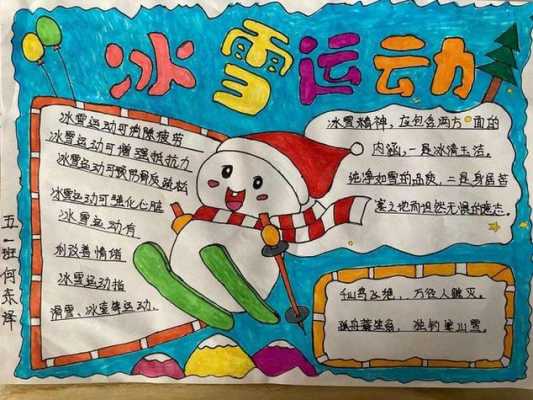 冰雪运动
冰雪运动可消除疲劳
冰雪运动可增强抵抗力
冰雪运动可预防骨质疏松
冰雪运动可强化心脏
冰雪运动有
利改善情绪
冰雪运动指
滑雪、冰壶等运动.
冰雪精神，应包含两方面的
内涵，一是冰清玉洁。
纯净如雪的品质，二是身居苦
寒之地而坦然无惧的意志。
千山鸟飞绝，万径人踪灭。
孤舟蓑笠翁，独钓寒江雪。
五一班何东泽